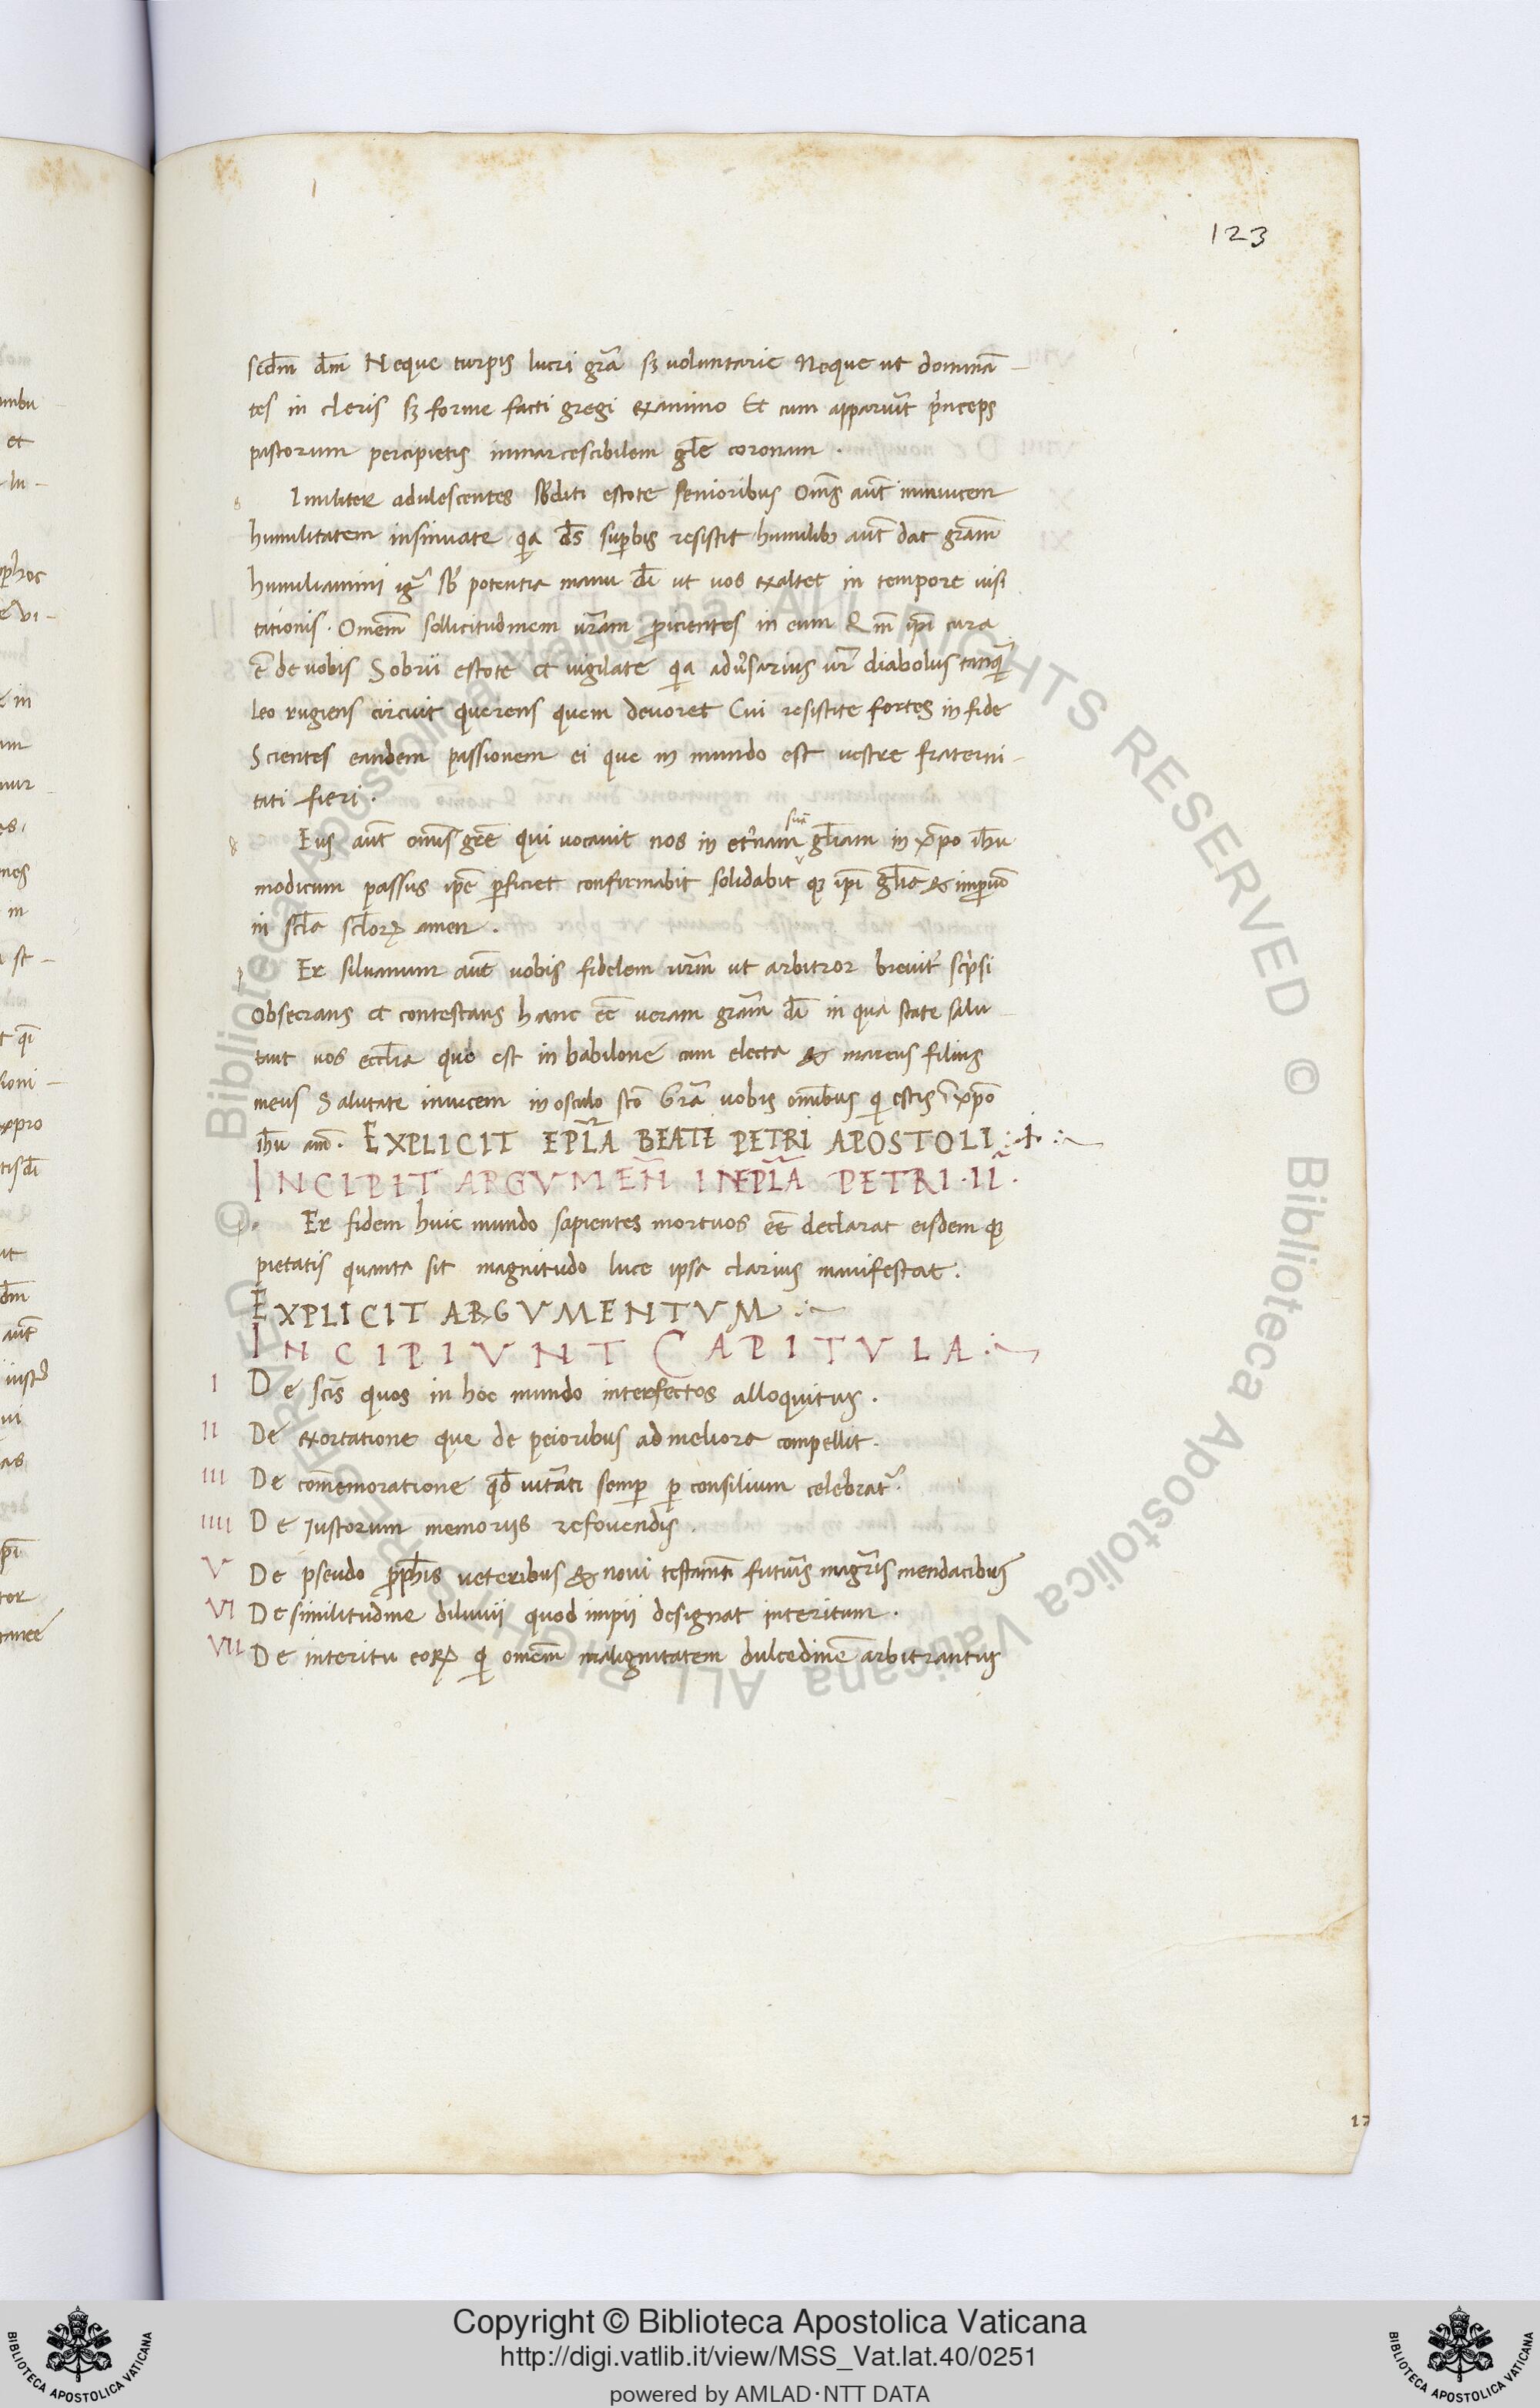 123
scđm dm̄ Neque turpis lucri gr̃a sꝫ voluntarie Neque ut dominā-
tes in cleris sꝫ forme facti gregi exanimo Et cum apparuit̄ p̾nceps
pastorum percipietis inmarcescibilem gl̄e coronam .
s Imiliter adulescentes sb̄diti estote senioribus Om̄s aut̄ inuicem
humilitatem insinuate q̾a d̄s sup̱bis resistit humilibꝫ aut̄ dat gram̄
humiliamini ig̾ sb̄ potentia manu dī ut uos exaltet in tempore uisi
tationis . Omem̄ sollicitudinem ur̄am ꝓicientes in eum Qm̄ ip̄i cura
ē de uobis Sobrii estote et uigilate q̾a adūsarius ur̄ diabolus tanq̄
leo rugiens circuit querens quem deuoret Cui resistite fortes in fide
Scientes eandem passionem ei que in mundo est uestre fraterni-
tati fieri .
d Eus aut̄ om̄s gr̄e qui uocauit nos in et̄nam suā gl̄iam in xp̄o ih̄u
modicum passus ip̄e ꝑficiet confirmabit solidabit qꝫ ip̄i gl̄ia & imꝑiū
in scl̄a scl̄oꝝ amen .
p Er siluanum aut̄ uobis fidelem ur̄m ut arbitror breuit̄ sc̾psi
obsecrans et contestans hanc eē ueram gr̄am dī in qua state salu-
tant uos eccl̄ia que est in babilone cum electa & marcus filius
meus Salutate inuicem in osculo scō Gr̄a uobis omīb̄us q̾ estis ī xp̄o
ih̄u am̄ . EXPLICIT EPL̄A BEATI PETRI APOSTOLI
INCIPIT ARGVMEN̄ IN EPL̄A PETRI · II ·
p Er fidem huic mundo sapientes mortuos eē declarat eisdem qꝫ
pietatis quanta sit magnitudo luce ipsa clarius manifestat .
EXPLICIT ARGVMENTVM
INCIPIVNT CAPITVLA
I De scīs quos in hoc mundo interfectos alloquitur .
II De exortatione que de peioribus ad meliora compellit .
III De com̄emoratione qd̄ uitāti semꝑ ꝑ consilium celebrat̾ .
IIII De iustorum memoriis refouendis .
V De pseudo ꝓph̄is ueteribus & noui testam̄ti futur̄is magr̄is mendacibus
VI De similitudine diluuii quod impii designat interitum .
VII De interitu eoꝝ q̾ omem̄ malignitatem dulcedinē arbitrantur
Copyright © Biblioteca Apostolica Vaticana
http://digi.vatlib.it/view/MSS_Vat.lat.40/0251
powered by AMLAD·NTT DATA